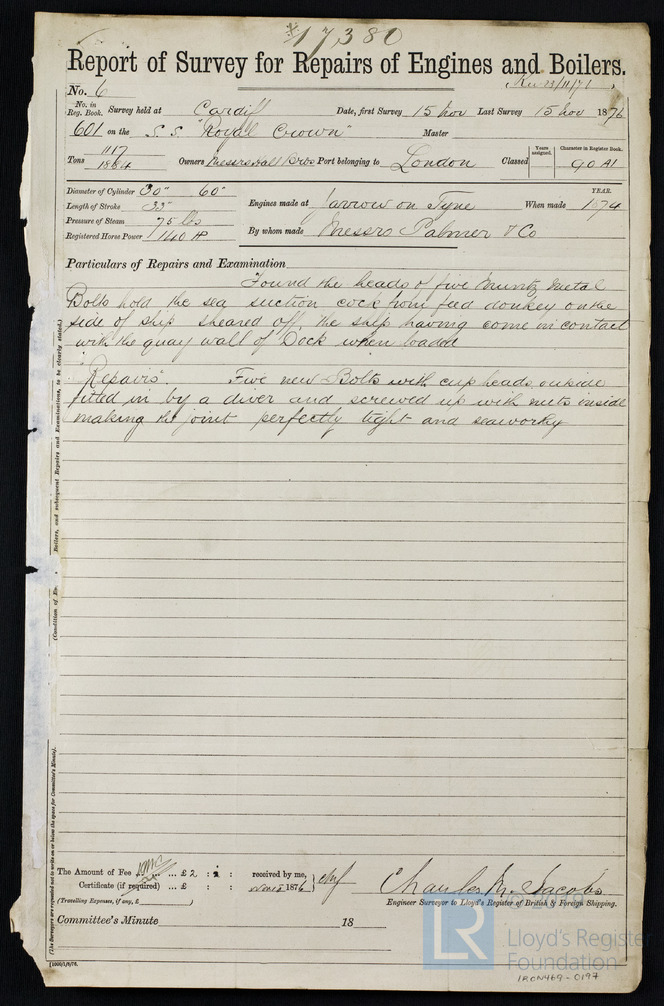 *17380
Report of Survey for Repairs of Engines and Boilers.
No. 6
Rec 23/11/76
No. in Reg. Book. Survey held at Cardiff Date, first Survey 15 Nov Last Survey 15 Nov 1876
601 on the S.S. "Royal Crown" Master
Tons 1117 1884 Owners Messrs Hall Bros Port belonging to London Classed Years assigned. Character in Register Book. 90 A1
Diameter of Cylinder 30" 60"
Length of Stroke 33"
Pressure of Steam 75 lbs
Registered Horse Power 140 HP
Engines made at Jarrow on Tyne When made YEAR. 1874
By whom made Messrs Palmer & Co
Particulars of Repairs and Examination
Found the heads of five Muntz Metal
Bolts hold the sea suction cock from feed donkey on the
side of ship sheared off, the ship having come in contact
with the quay wall of Dock when loaded
"Repairs". Five new Bolts with cup heads outside
fitted in by a diver and screwed up with nuts inside
making the joint perfectly tight and seaworthy
(Condition of En Boilers, and subsequent Repairs and Examinations, to be clearly stated.)
(The Surveyors are requested not to write on or below the space for Committee's Minute).
The Amount of Fee ... £ 2 : 2 : received by me,
Certificate (if required) ... £ : : 1876
(Travelling Expenses, if any, £ )
Charles M. Jacobs
Engineer Surveyor to Lloyd's Register of British & Foreign Shipping.
Committee's Minute 18
LR
Lloyd's Register
Foundation
IRON469-0197